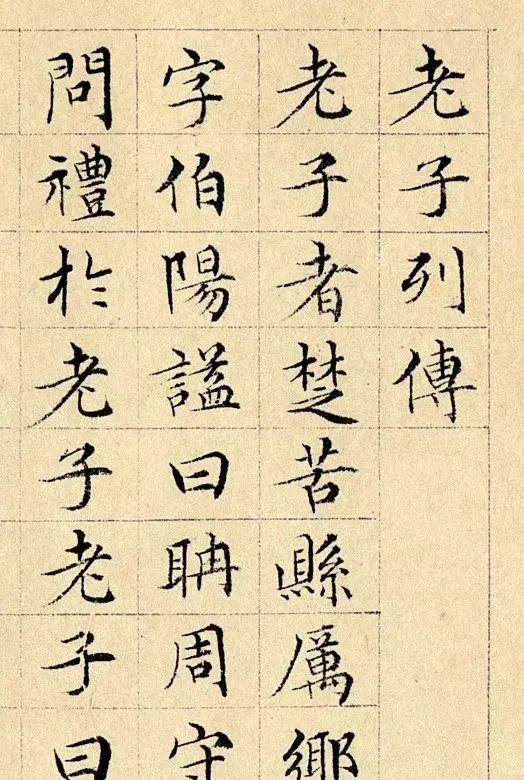 老子列傳
老子者楚苦縣厲鄉
字伯陽謚曰聃周守
問禮於老子老子曰